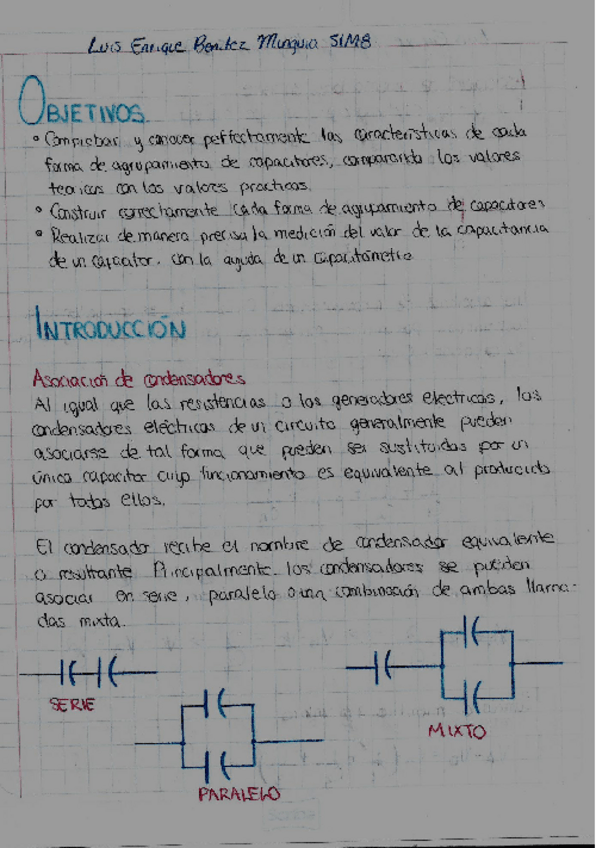 Luis Enrique Benitez Munguia 5IM8
OBJETIVOS
• Comprobar y conocer perfectamente las características de cada
forma de agrupamiento de capacitores, comparando los valores
teoricos con los valores practicos.
• Construir correctamente cada forma de agrupamiento de capacitores
• Realizar de manera precisa la medición del valor de la capacitancia
de un capacitor, con la ayuda de un capacitómetro
INTRODUCCIÓN
Asociación de condensadores
Al igual que las resistencias o los generadores electricos, los
condensadores eléctricos de un circuito generalmente pueden
asociarse de tal forma que pueden ser sustituidos por un
único capacitor cuyo funcionamiento es equivalente al producido
por todos ellos.
El condensador recibe el nombre de condensador equivalente
o resultante. Principalmente los condensadores se pueden
asociar en serie, paralelo o una combinación de ambas llama-
das mixta.
SERIE
MIXTO
PARALELO